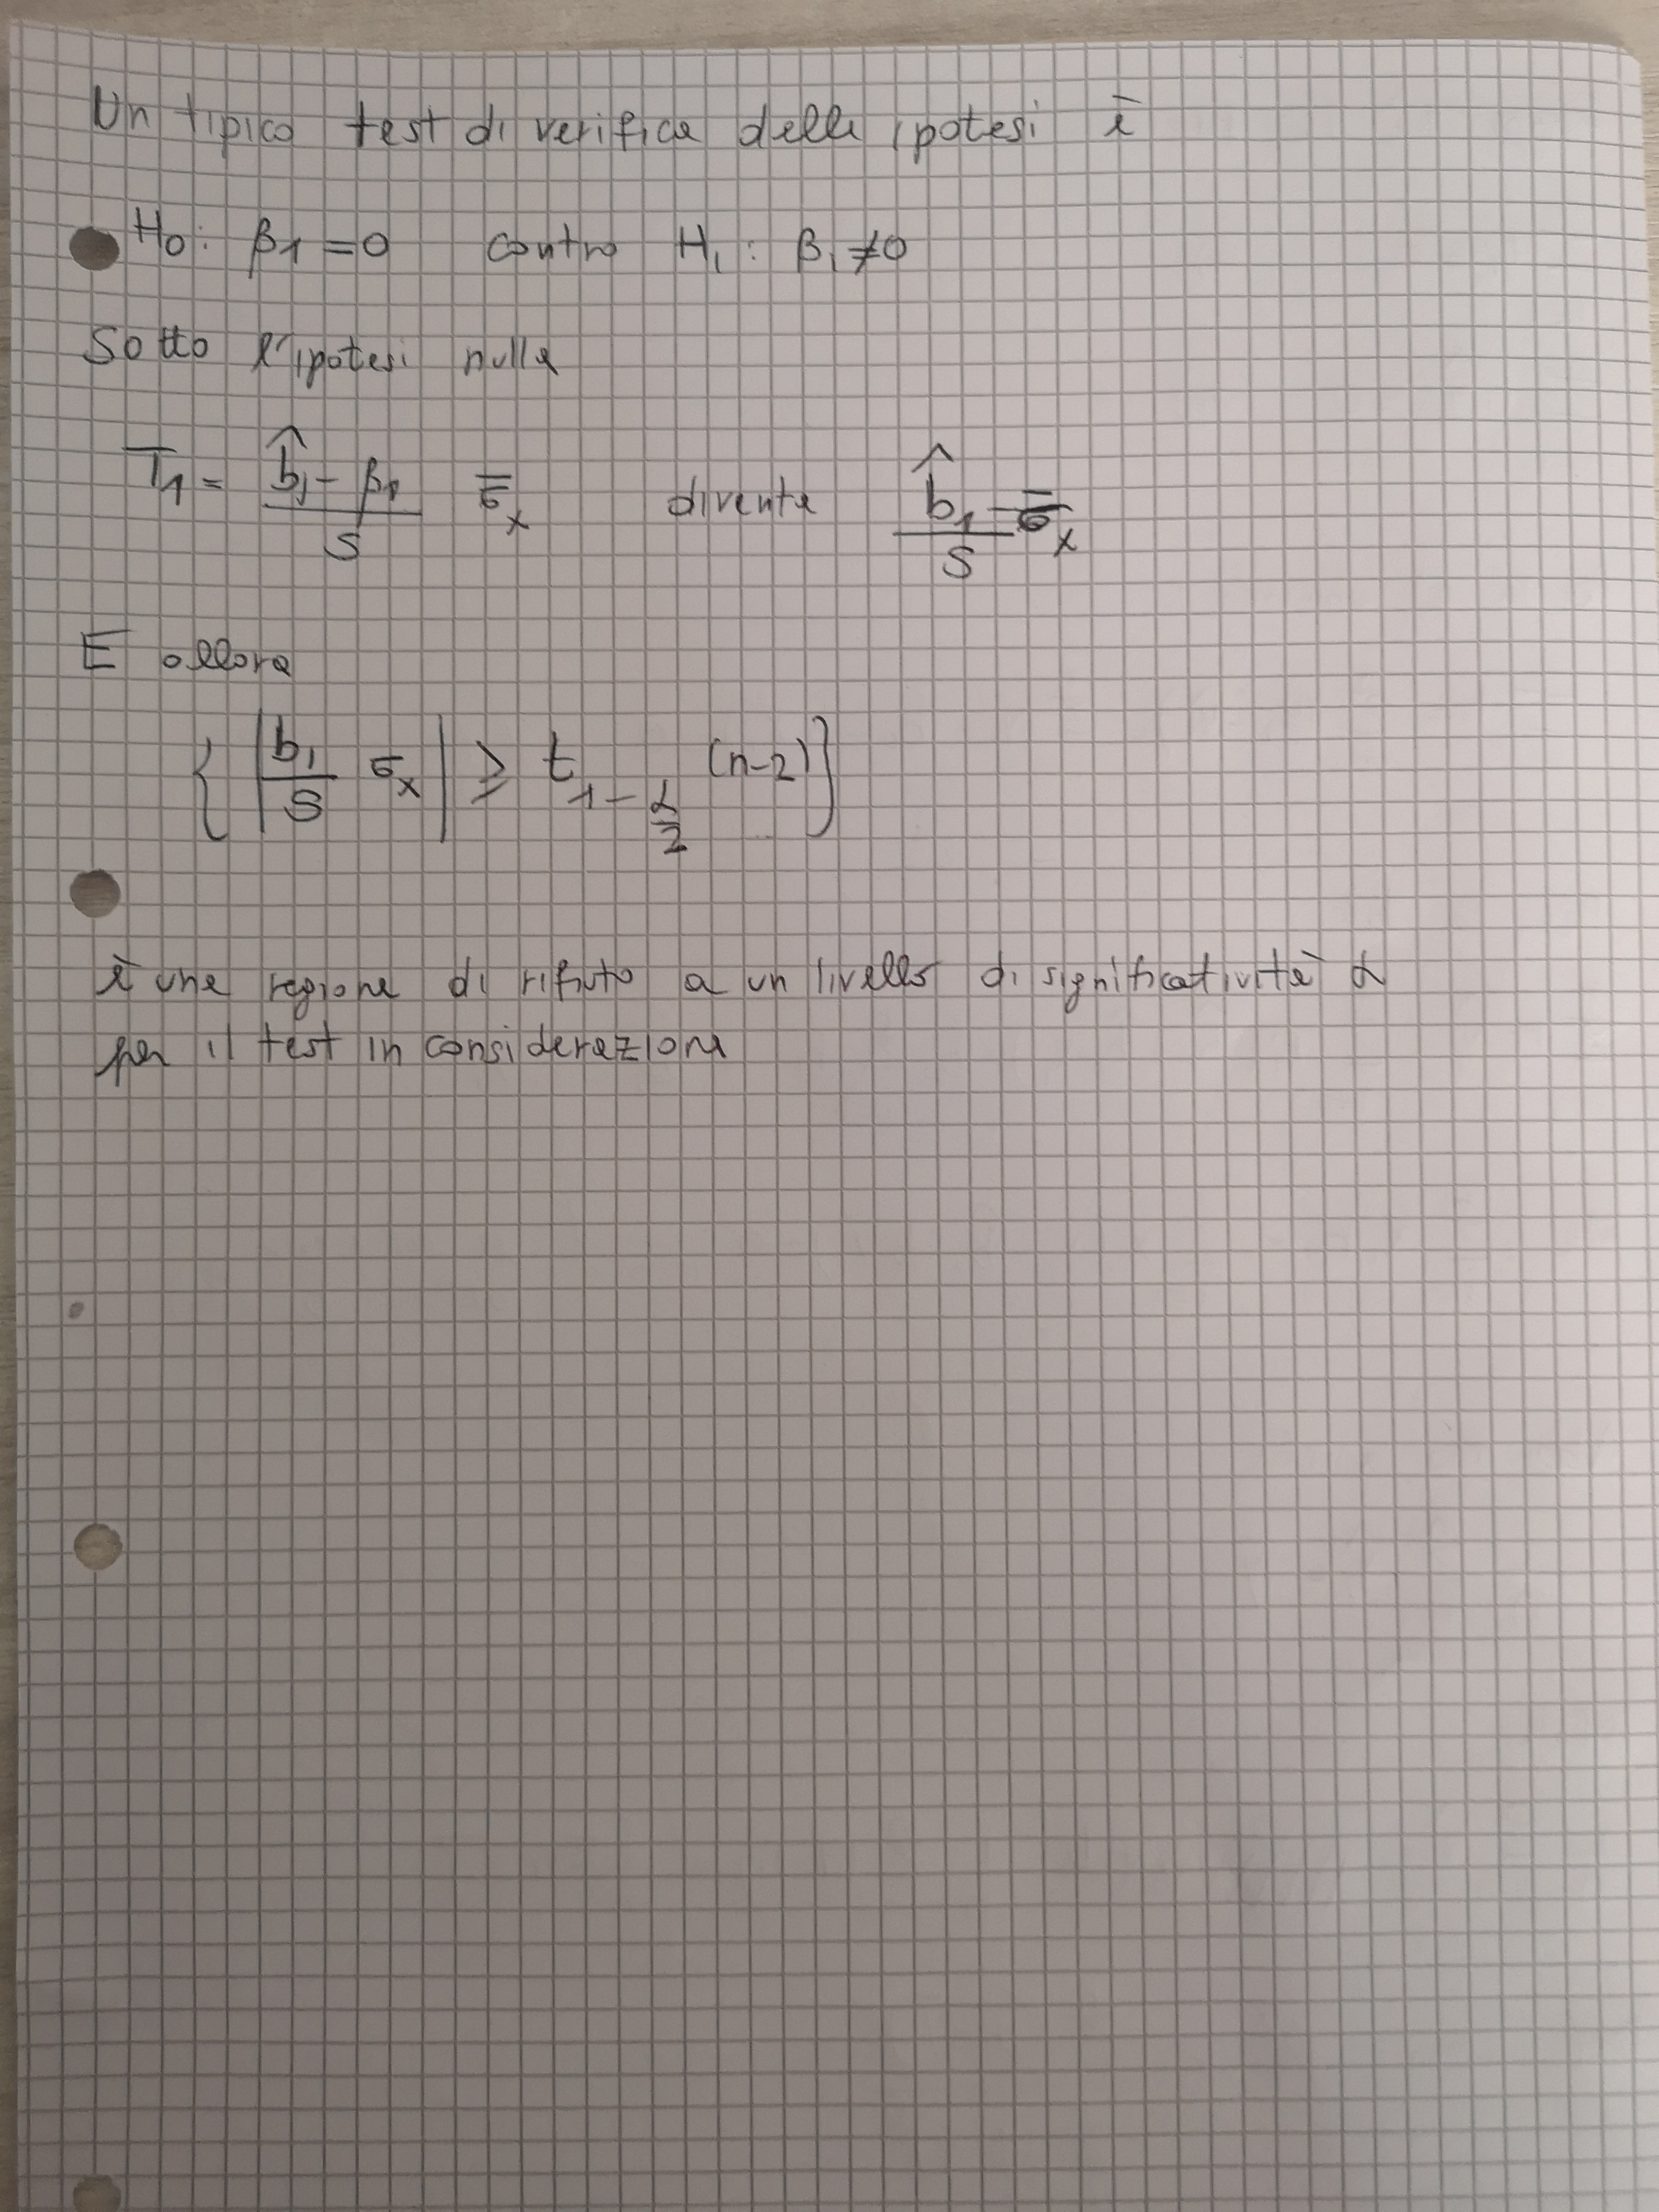 Un tipico test di verifica delle ipotesi è
H0: β1 = 0 contro H1: β1 ≠ 0
Sotto l'ipotesi nulla
T1 = (b̂1 - β1)/S σ̅x diventa b̂1/S σ̅x
E allora
{ |b1/S σ̅x| ⩾ t1-α/2 (n-2) }
è una regione di rifiuto a un livello di significatività α
per il test in considerazione